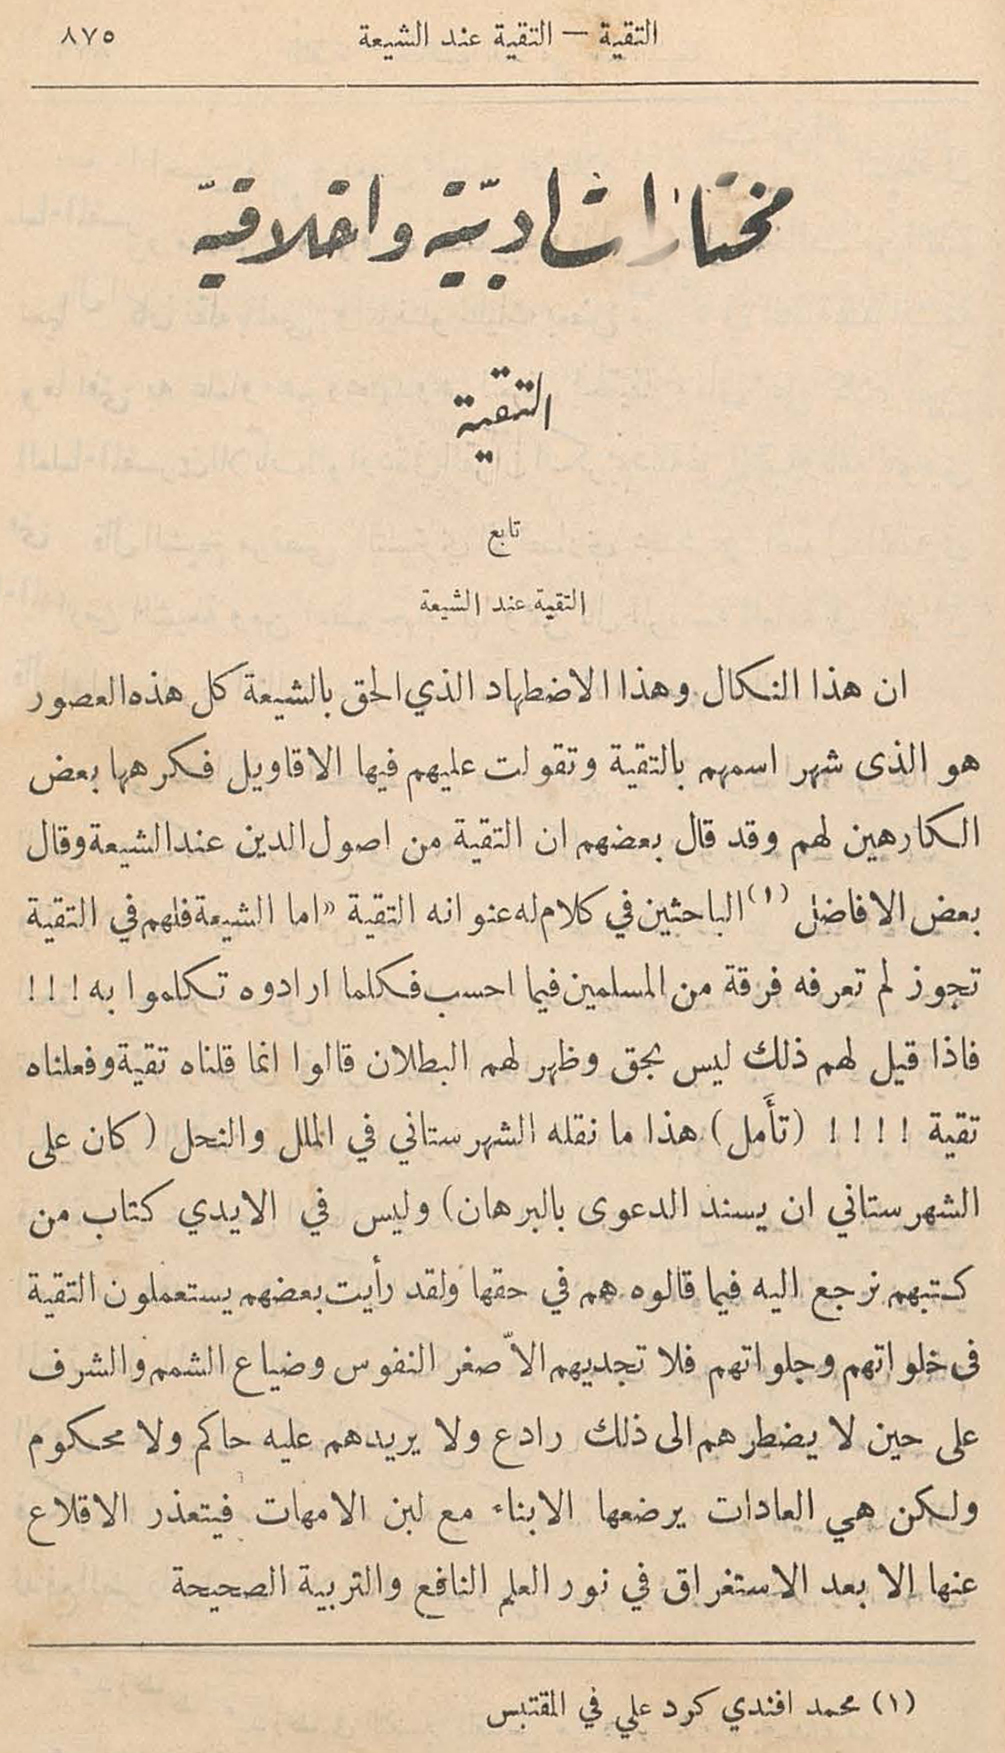 التقية — التقية عند الشيعة ٨٧٥
مختارات ادبيّة واخلاقيّة
التقية
تابع
التقية عند الشيعة
ان هذا النكال وهذا الاضطهاد الذي الحق بالشيعة كل هذه العصور
هو الذى شهر اسمهم بالتقية وتقولت عليهم فيها الاقاويل فكرهها بعض
الكارهين لهم وقد قال بعضهم ان التقية من اصول الدين عند الشيعة وقال
بعض الافاضل (١) الباحثين في كلام له عنوانه التقية «اما الشيعة فلهم في التقية
تجوز لم تعرفه فرقة من المسلمين فيما احسب فكلما ارادوه تكلموا به ! ! !
فاذا قيل لهم ذلك ليس بحق وظهر لهم البطلان قالوا انما قلناه تقية وفعلناه
تقية ! ! ! ! (تأَمل) هذا ما نقله الشهرستاني في الملل والنحل (كان على
الشهرستاني ان يسند الدعوى بالبرهان) وليس في الايدي كتاب من
كتبهم نرجع اليه فيما قالوه هم في حقها ولقد رأيت بعضهم يستعملون التقية
فى خلواتهم وجلواتهم فلا تجديهم الاّ صغر النفوس وضياع الشمم والشرف
على حين لا يضطرهم الى ذلك رادع ولا يريدهم عليه حاكم ولا محكوم
ولكن هي العادات يرضعها الابناء مع لبن الامهات فيتعذر الاقلاع
عنها إلا بعد الاستغراق في نور العلم النافع والتربية الصحيحة
(١) محمد افندي كرد علي في المقتبس